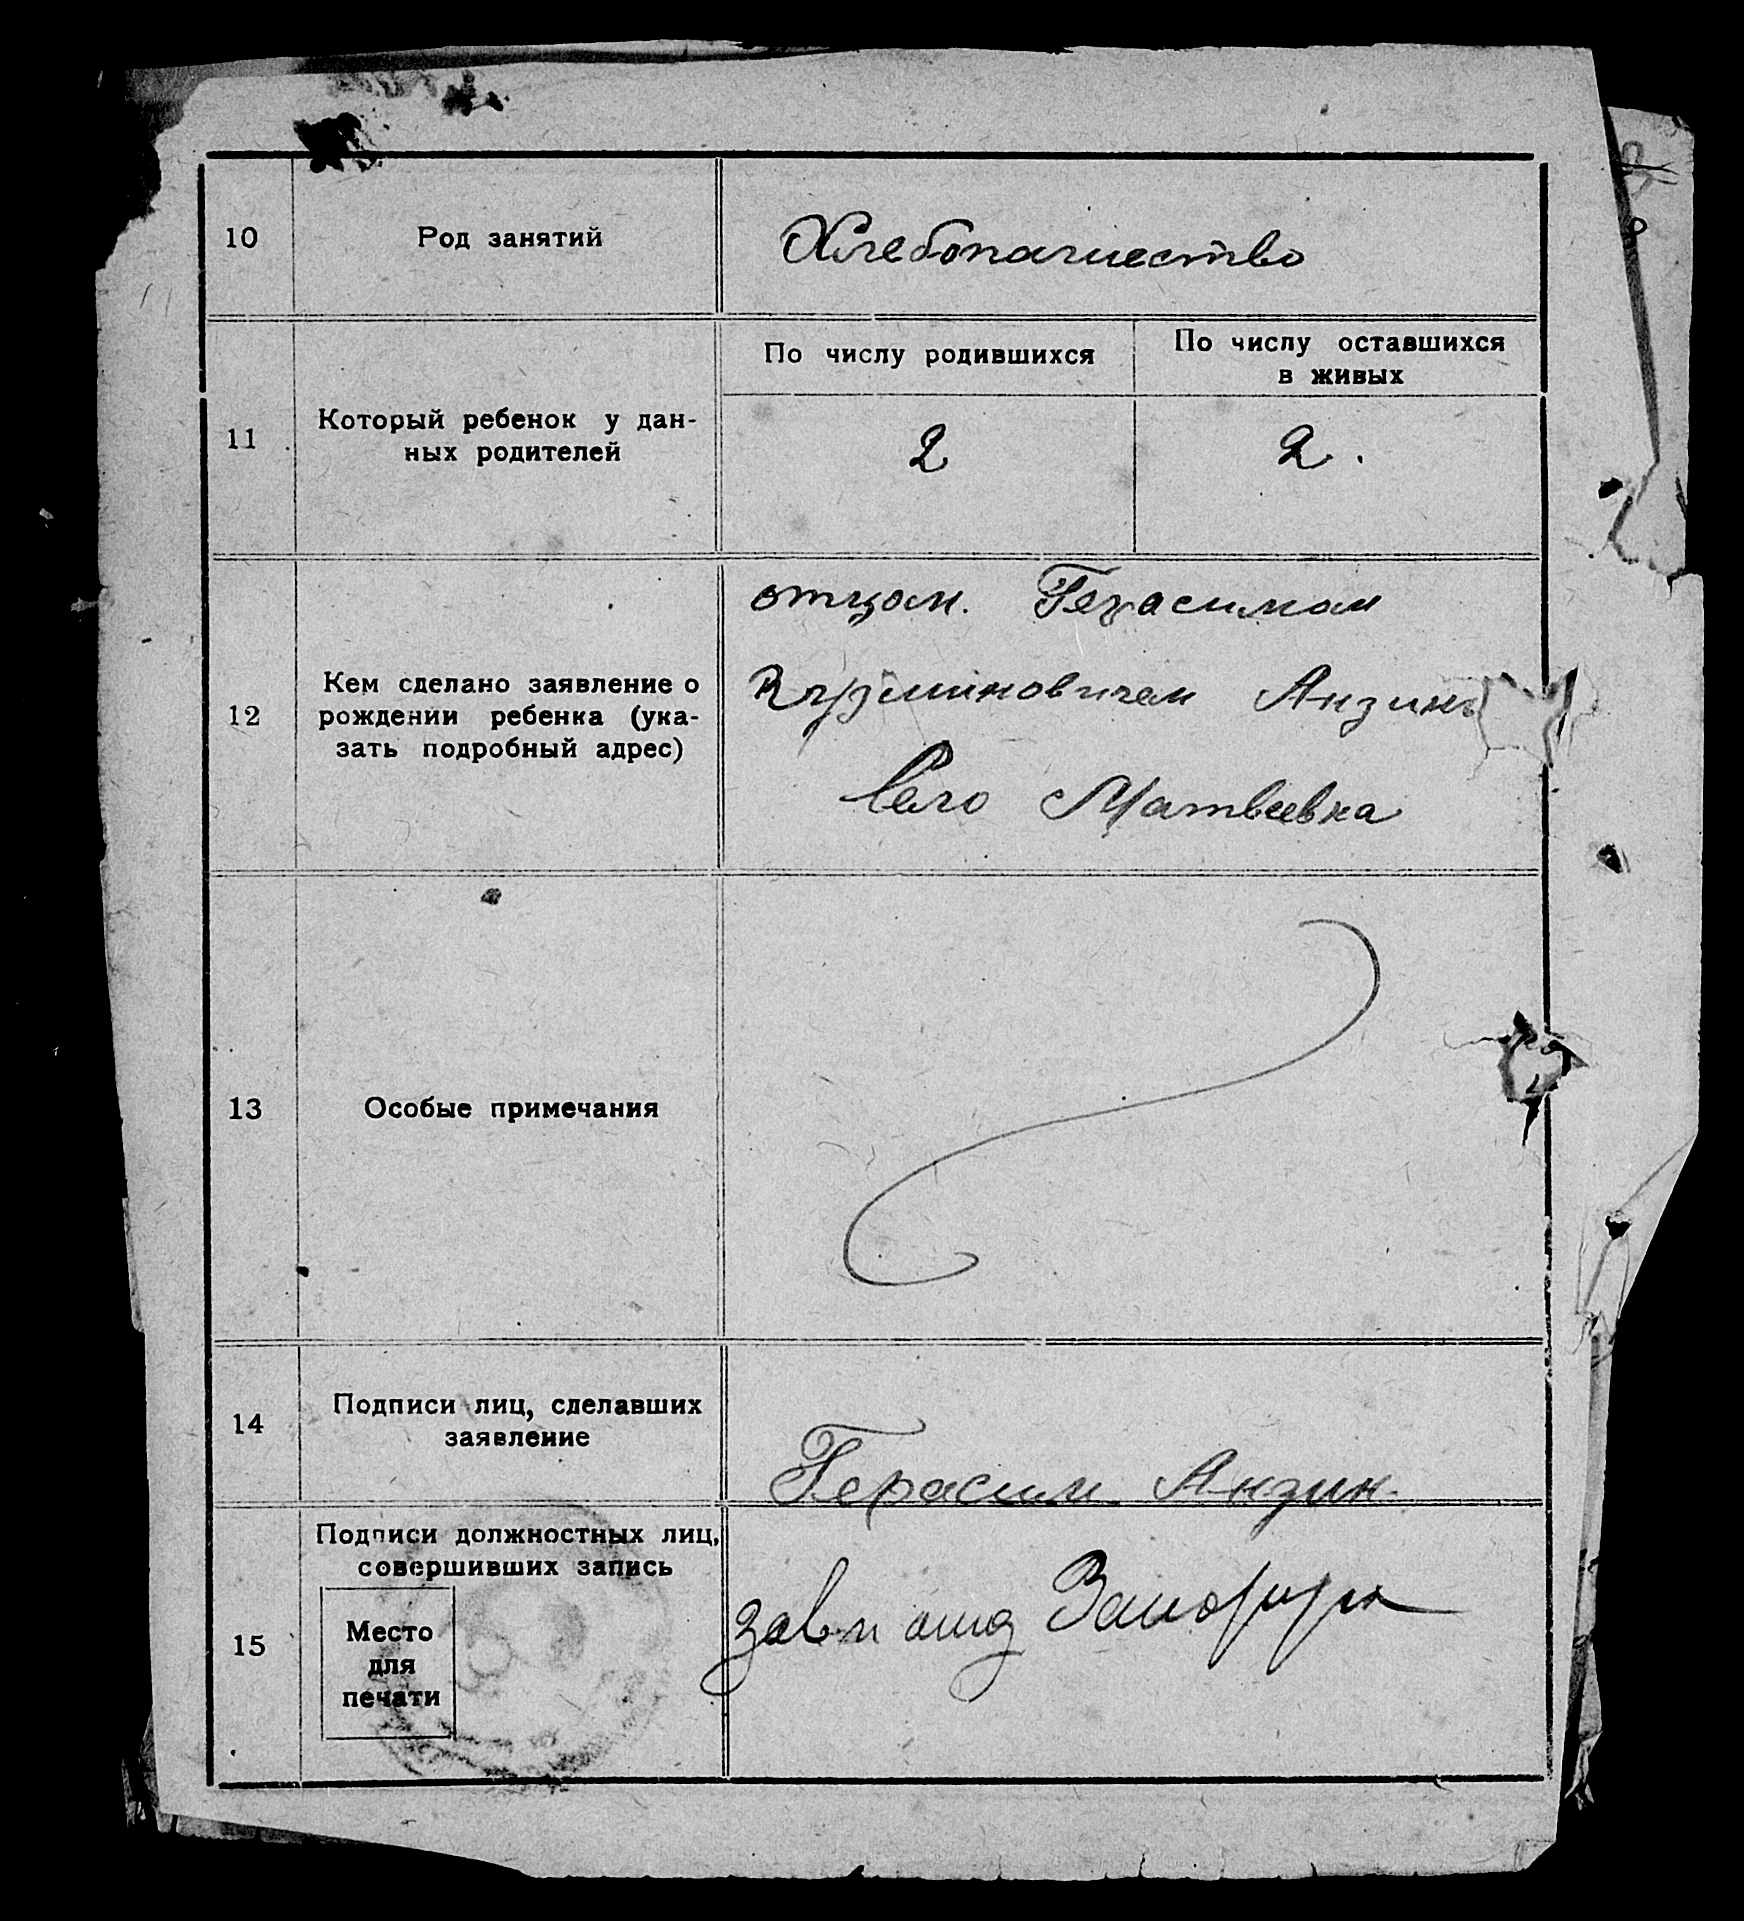 10
Род занятий
Хлебопашество
11
Который ребенок у дан-
ных родителей
По числу родившихся
По числу оставшихся
в живых
2
2.
12
Кем сделано заявление о
рождении ребенка (ука-
зать подробный адрес)
отцом. Герасимом
Кузминовичем Анзины
Село Матвеевка
13
Особые примечания
14
Подписи лиц, сделавших
заявление
Герасим Анзин.
15
Подписи должностных лиц,
совершивших запись
Место
для
печати